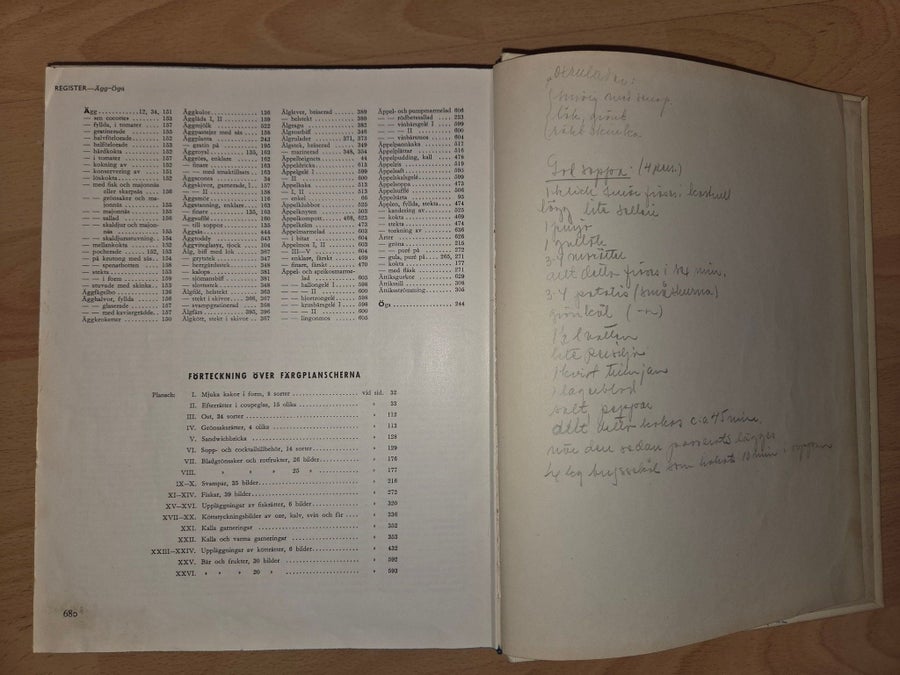 REGISTER—Ägg-Öga
Ägg .......... 12, 34, 151
— sen cocotte .......... 153
— fyllda, i tomater .......... 157
— gratinerade .......... 153
— halvförlorade .......... 152
— hårdkokta .......... 152
— i tomater .......... 157
— kokning av .......... 152
— konservering av .......... 151
— löskokta .......... 152
— med fisk och majonnäs
eller skarpsås .......... 156
— — grönsaker och ma-
jonnäs .......... 155
— — majonnäs .......... 155
— — sallad .......... 156
— — skaldjur och majon-
näs .......... 155
— — skaldjursstuvning .. 154
— mellankokta .......... 152
— pocherade .......... 152, 153
— — på krutong med sås .. 154
— — spenatbotten .......... 154
— stekta .......... 153
— — i form
— stuvade med skinka .. 153
Äggfågelbo .......... 156
Ägghalvor, fyllda .......... 156
— — glaserade .......... 157
— — med kaviargrädde .. 157
Äggkroketter .......... 150
Äggkulor .......... 136
Ägglåda I, II .......... 159
Äggmjölk .......... 522
Äggpastejer med sås .......... 158
Äggplanta .......... 243
— gratin på .......... 195
Äggroyal .......... 135, 163
Äggröra, enklare .......... 162
— finare .......... 163
— — med smaktillsats .. 163
Äggsconts .......... 34
Äggskivor, garnerade, I .. 157
— — II .......... 158
Äggsmör .......... 116
Äggstanning, enklare .......... 163
— finare .......... 135, 163
Äggsufflé .......... 160
— till soppor .......... 135
Äggsås .......... 444
Äggtoddy .......... 543
Äggviteglästy, tjock .......... 104
Älg, biff med lök .......... 367
— grytstek .......... 347
— herrgårdsstek .......... 348
— kalops .......... 381
— sjömansbiff .......... 381
— slottsstek .......... 348
Älgfilé, helstekt .......... 363
— stekt i skivor .......... 366, 367
— svampgratinerad .......... 368
Älgfärs .......... 393, 396
Älgkött, stekt i skivor .. 367
Älglever, bräserad .......... 389
— helstekt .......... 389
Älgragu .......... 382
Älgrostbiff .......... 346
Älgrulader .......... 371, 372
Älgstek, bräserad .......... 349
— marinerad .......... 348, 354
Äppelbeignets .......... 44
Äppeldricka .......... 613
Äppelgelé I .......... 599
— II .......... 600
Äppelkaka .......... 512
— I .......... 513
— enkel
Äppelklubbor .......... 525
Äppelknyten .......... 503
Äppelkompott .......... 468, 622
Äppelkräm .......... 473
Äppelmarmelad .......... 602
— i bitar .......... 604
Äppelmos I, II .......... 603
— III—V .......... 604
— enklare, färskt .......... 469
— finare, färskt .......... 470
Äppel- och aprikosmarme-
lad .......... 605
— — hallongelé I .......... 600
— — — II .......... 600
— — hjortrongelé .......... 600
— — krusbärsgelé I .......... 599
— — — II .......... 600
— — lingonmos .......... 605
Äppel- och pumpmarmelad 604
— — rödbetssallad .......... 253
— — vinbärsgelé I .......... 599
— — — II .......... 600
— — vinbärsmos .......... 604
Äppelpannkaka .......... 512
Äppelplättar .......... 516
Äppelpudding, kall .......... 476
Äppelris .......... 519
Äppelsaft .......... 595
Äppelskalsgelé .......... 599
Äppelsoppa .......... 473
Äppelsufflé .......... 506
Äppeltårta .......... 93
Äpplen, fyllda, stekta .......... 474
— kandering av .......... 525
— kokta .......... 469
— stekta .......... 474
— torkning av .......... 636
Ärter .......... 626
— gröna .......... 215
— — puré på .......... 272
— gula, puré på .......... 265, 271
— kokta .......... 177
— med fläsk .......... 271
Ättiksgurkor .......... 629
Ättikssill .......... 304
Ättikströmming .......... 305
Öga .......... 244
FÖRTECKNING ÖVER FÄRGPLANSCHERNA
Plansch: I. Mjuka kakor i form, 8 sorter .......... vid sid. 32
II. Efterrätter i coupeglas, 15 olika .......... » 33
III. Ost, 24 sorter .......... » 112
IV. Grönsaksrätter, 4 olika .......... » 113
V. Sandwichbricka .......... » 128
VI. Sopp- och cocktailtillbehör, 14 sorter .......... » 129
VII. Bladgrönsaker och rotfrukter, 26 bilder .......... » 176
VIII. » » » 25 » .......... » 177
IX—X. Svampar, 35 bilder .......... » 216
XI—XIV. Fiskar, 39 bilder .......... » 272
XV—XVI. Uppläggningar av fiskrätter, 6 bilder .......... » 320
XVII—XX. Köttstyckningsbilder av oxe, kalv, svin och får .... » 336
XXI. Kalla garneringar .......... » 352
XXII. Kalla och varma garneringar .......... » 353
XXIII—XXIV. Uppläggningar av kötträtter, 6 bilder .......... » 432
XXV. Bär och frukter, 20 bilder .......... » 592
XXVI. » » » 20 » .......... » 593
680
lök, grädde
rökt skinka.
Sol soppa: (4 pers.)
lägg lite selleri
1 purjo
1 gullök
3-4 morötter
allt detta fräses i 10 min.
3-4 potatis (småskurna)
grönkål
1½ l vatten
lite persilja
1 kvist timjan
1 lagerblad
salt, peppar
allt detta kokas c:a 45 min.
när den sedan passerats lägges
som kokats 10 min. i soppan